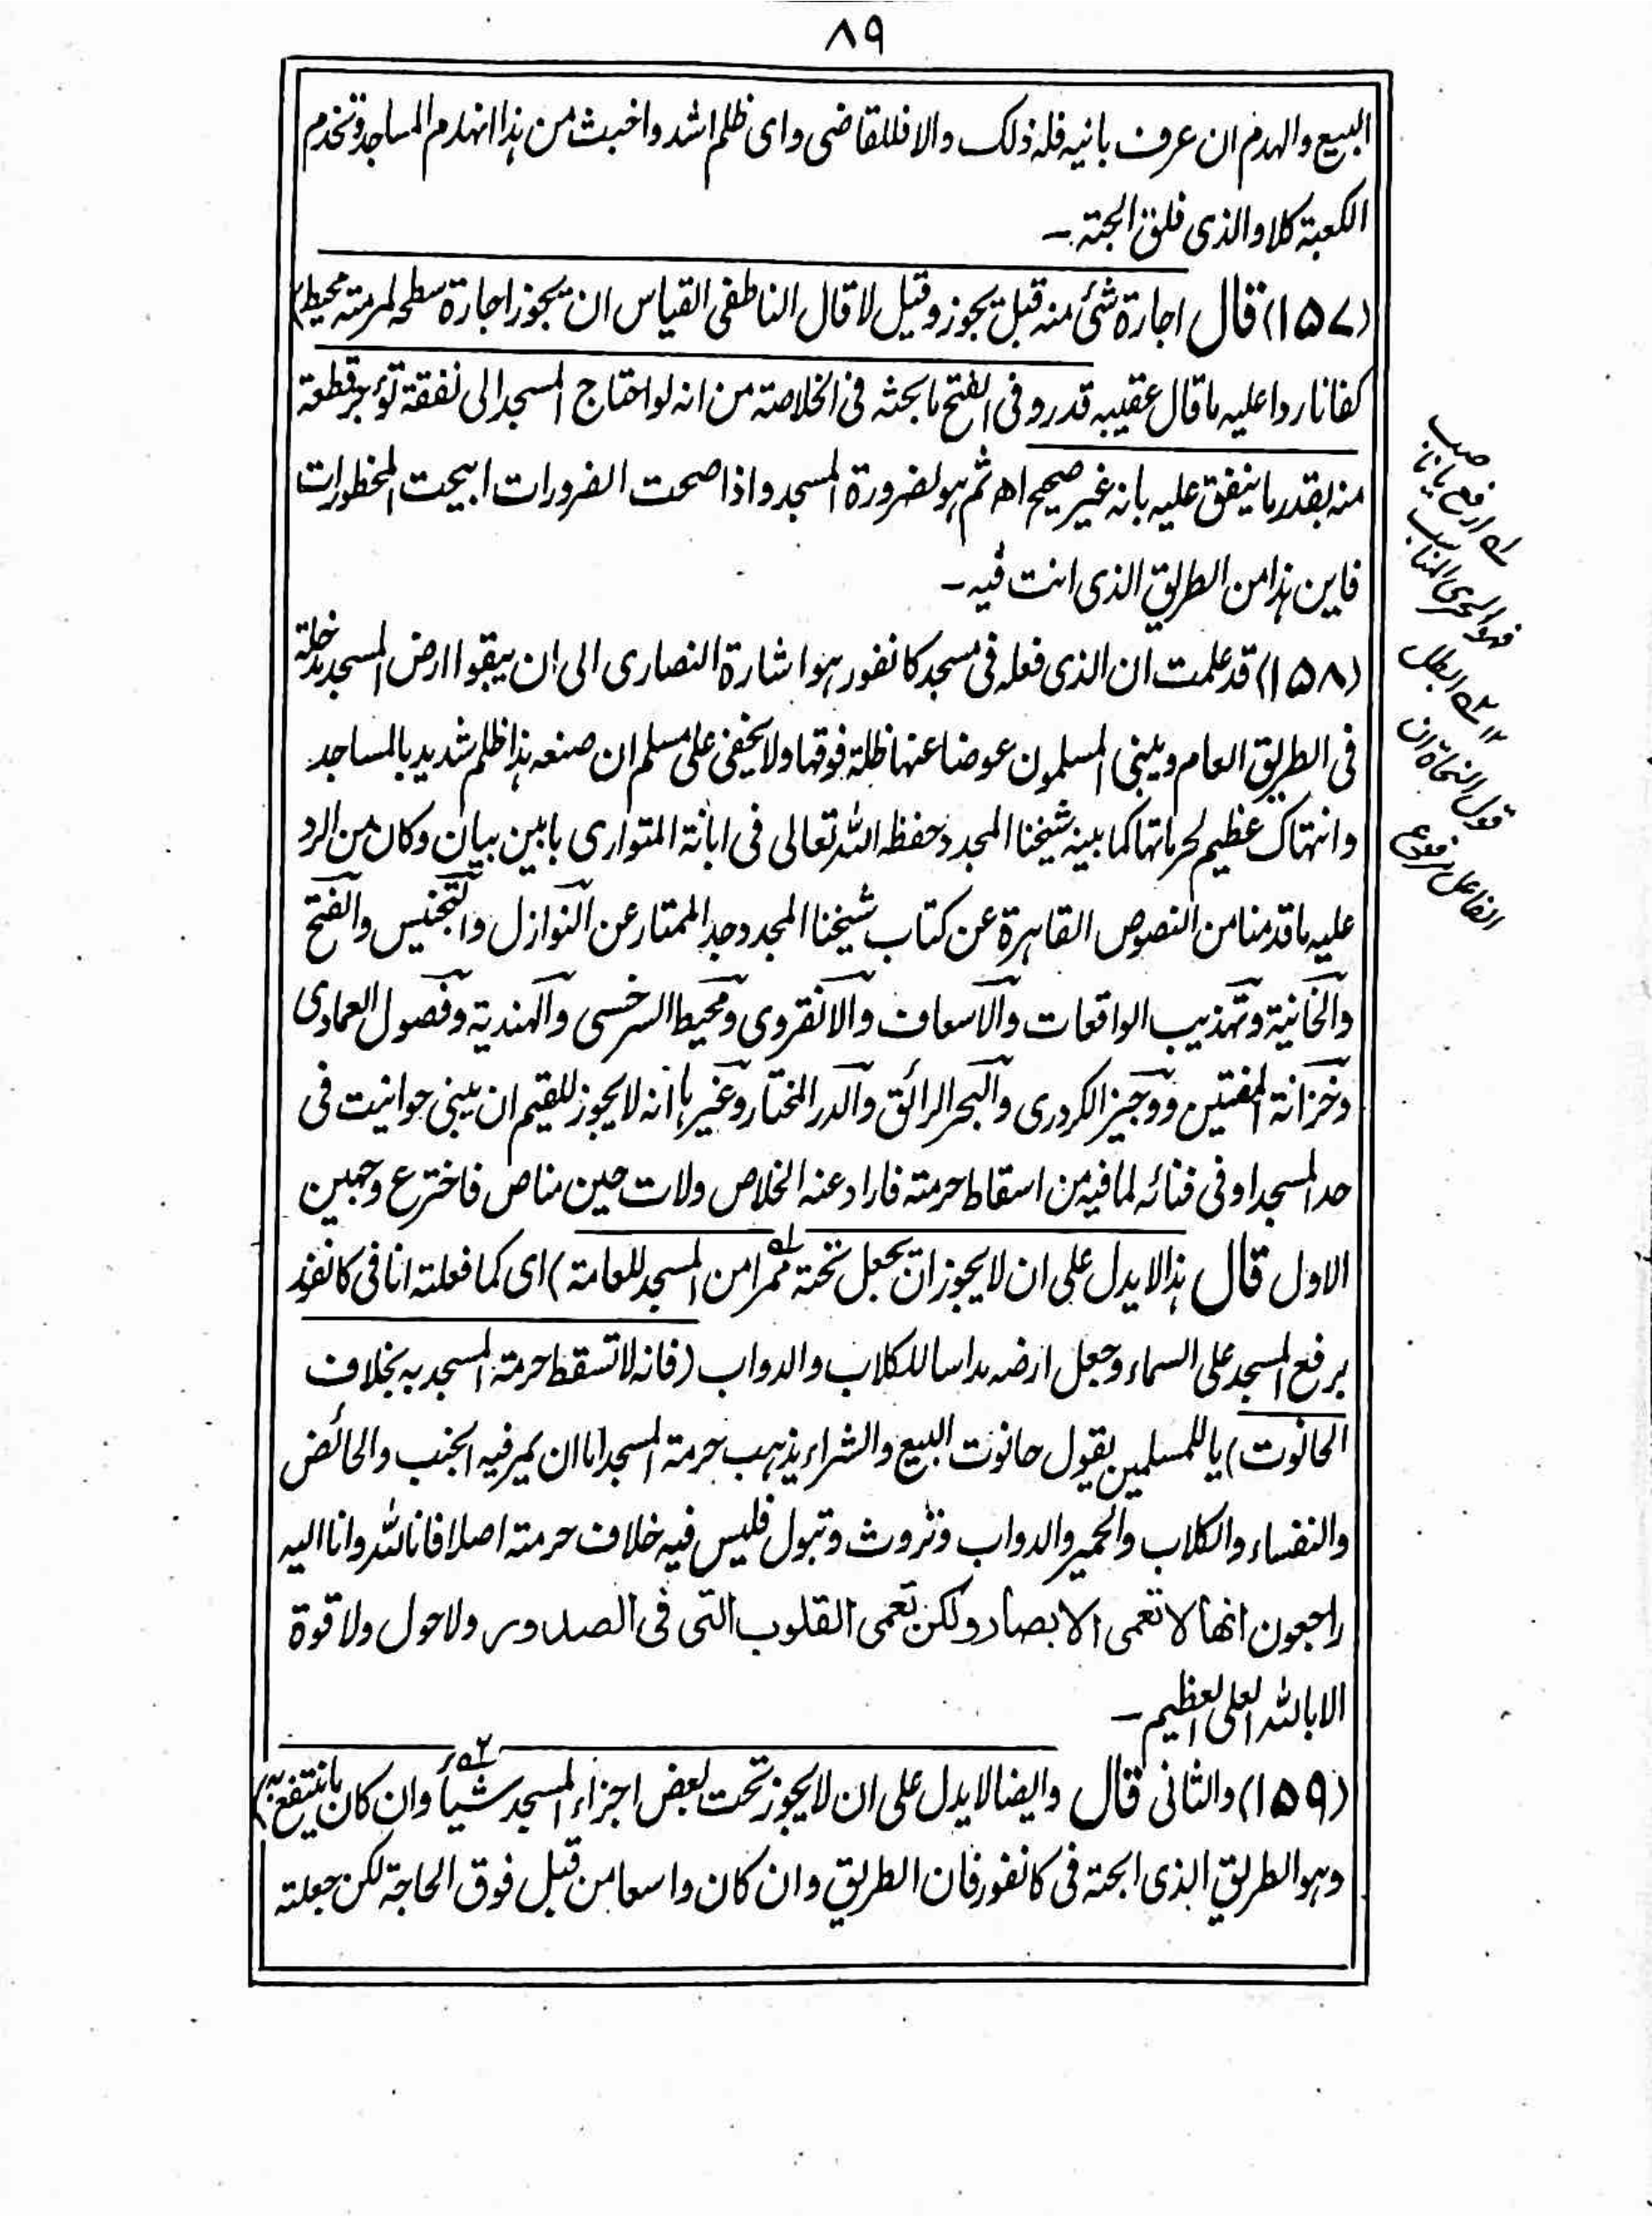 ٨٩
البيع والهدم ان عرف بانيه فله ذلك والا فللقاضى واى ظلم اشد واخبث من هذا انهدم المساجد وتخدم
الكعبة كلا والذى فلق الجنة۔
(١٥٧) قال اجارة شئ منه قبل يجوز وقيل لا قال الناطفى القياس ان يجوز اجارة سطحه لمرمته محيط)
كفانا ردا عليه ما قال عقيبه قد رد فى الفتح ما بحثه فى الخلاصة من انه لو احتاج المسجد الى نفقة تؤجر قطعة
منه بقدر ما ينفق عليه بانه غير صحيح اه ثم هو لضرورة المسجد واذا صحت الضرورات ابيحت المخطورات
فاين هذا من الطريق الذى انت فيه۔
(١٥٨) قد علمت ان الذى فعله فى مسجد كانفور هو اشارة النصارى الى ان يبقوا ارض المسجد داخلة
فى الطريق العام ويبنى المسلمون عوضا عنها ظلة فوقها ولا يخفى على مسلم ان صنعه هذا ظلم شديد بالمساجد
وانتهاك عظيم لحرماتها كما بينه شيخنا المجدد حفظه الله تعالى فى ابانة المتوارى بابين بيان وكان من الرد
عليه ما قدمنا من النصوص القاهرة عن كتاب شيخنا المجدد وجد الممتار عن النوازل والتجنيس والفتح
والخانية وتهذيب الواقعات والاسعاف والانقروى ومحيط السرخسى والهندية وفصول العمادى
وخزانة المفتين ووجيز الكردرى والبحر الرائق والدر المختار وغيرها انه لا يجوز للقيم ان يبنى حوانيت فى
حد المسجد او فى فنائه لما فيه من اسقاط حرمته فاراد عنه الخلاص ولات حين مناص فاخترع وجهين
الاول قال هذا لا يدل على ان لا يجوز ان يجعل تحته ممرا من المسجد للعامة) اى كما فعلته انا فى كانفور
برفع المسجد على السماء وجعل ارضه مداسا للكلاب والدواب (فانه لا تسقط حرمة المسجد به بخلاف
الحانوت) يا للمسلمين يقول حانوت البيع والشراء يذهب حرمة المسجد اما ان يمر فيه الجنب والحائض
والنفساء والكلاب والحمير والدواب وتروث وتبول فليس فيه خلاف حرمته اصلا فانا لله وانا اليه
راجعون انها لا تعمى الابصار ولكن تعمى القلوب التى فى الصدور ولا حول ولا قوة
الا بالله العلى العظيم۔
(١٥٩) والثانى قال وايضا لا يدل على ان لا يجوز تحت بعض اجزاء المسجد شيأ وان كان ما ينتفع به)
وهو الطريق الذى ابحته فى كانفور فان الطريق وان كان واسعا من قبل فوق الحاجة لكن جعلته
له ارفع يا ناصب
فهو الحرى المناسب
١٢ ٢ه ابطل
قول النحاة ان
الفاعل مرفوع